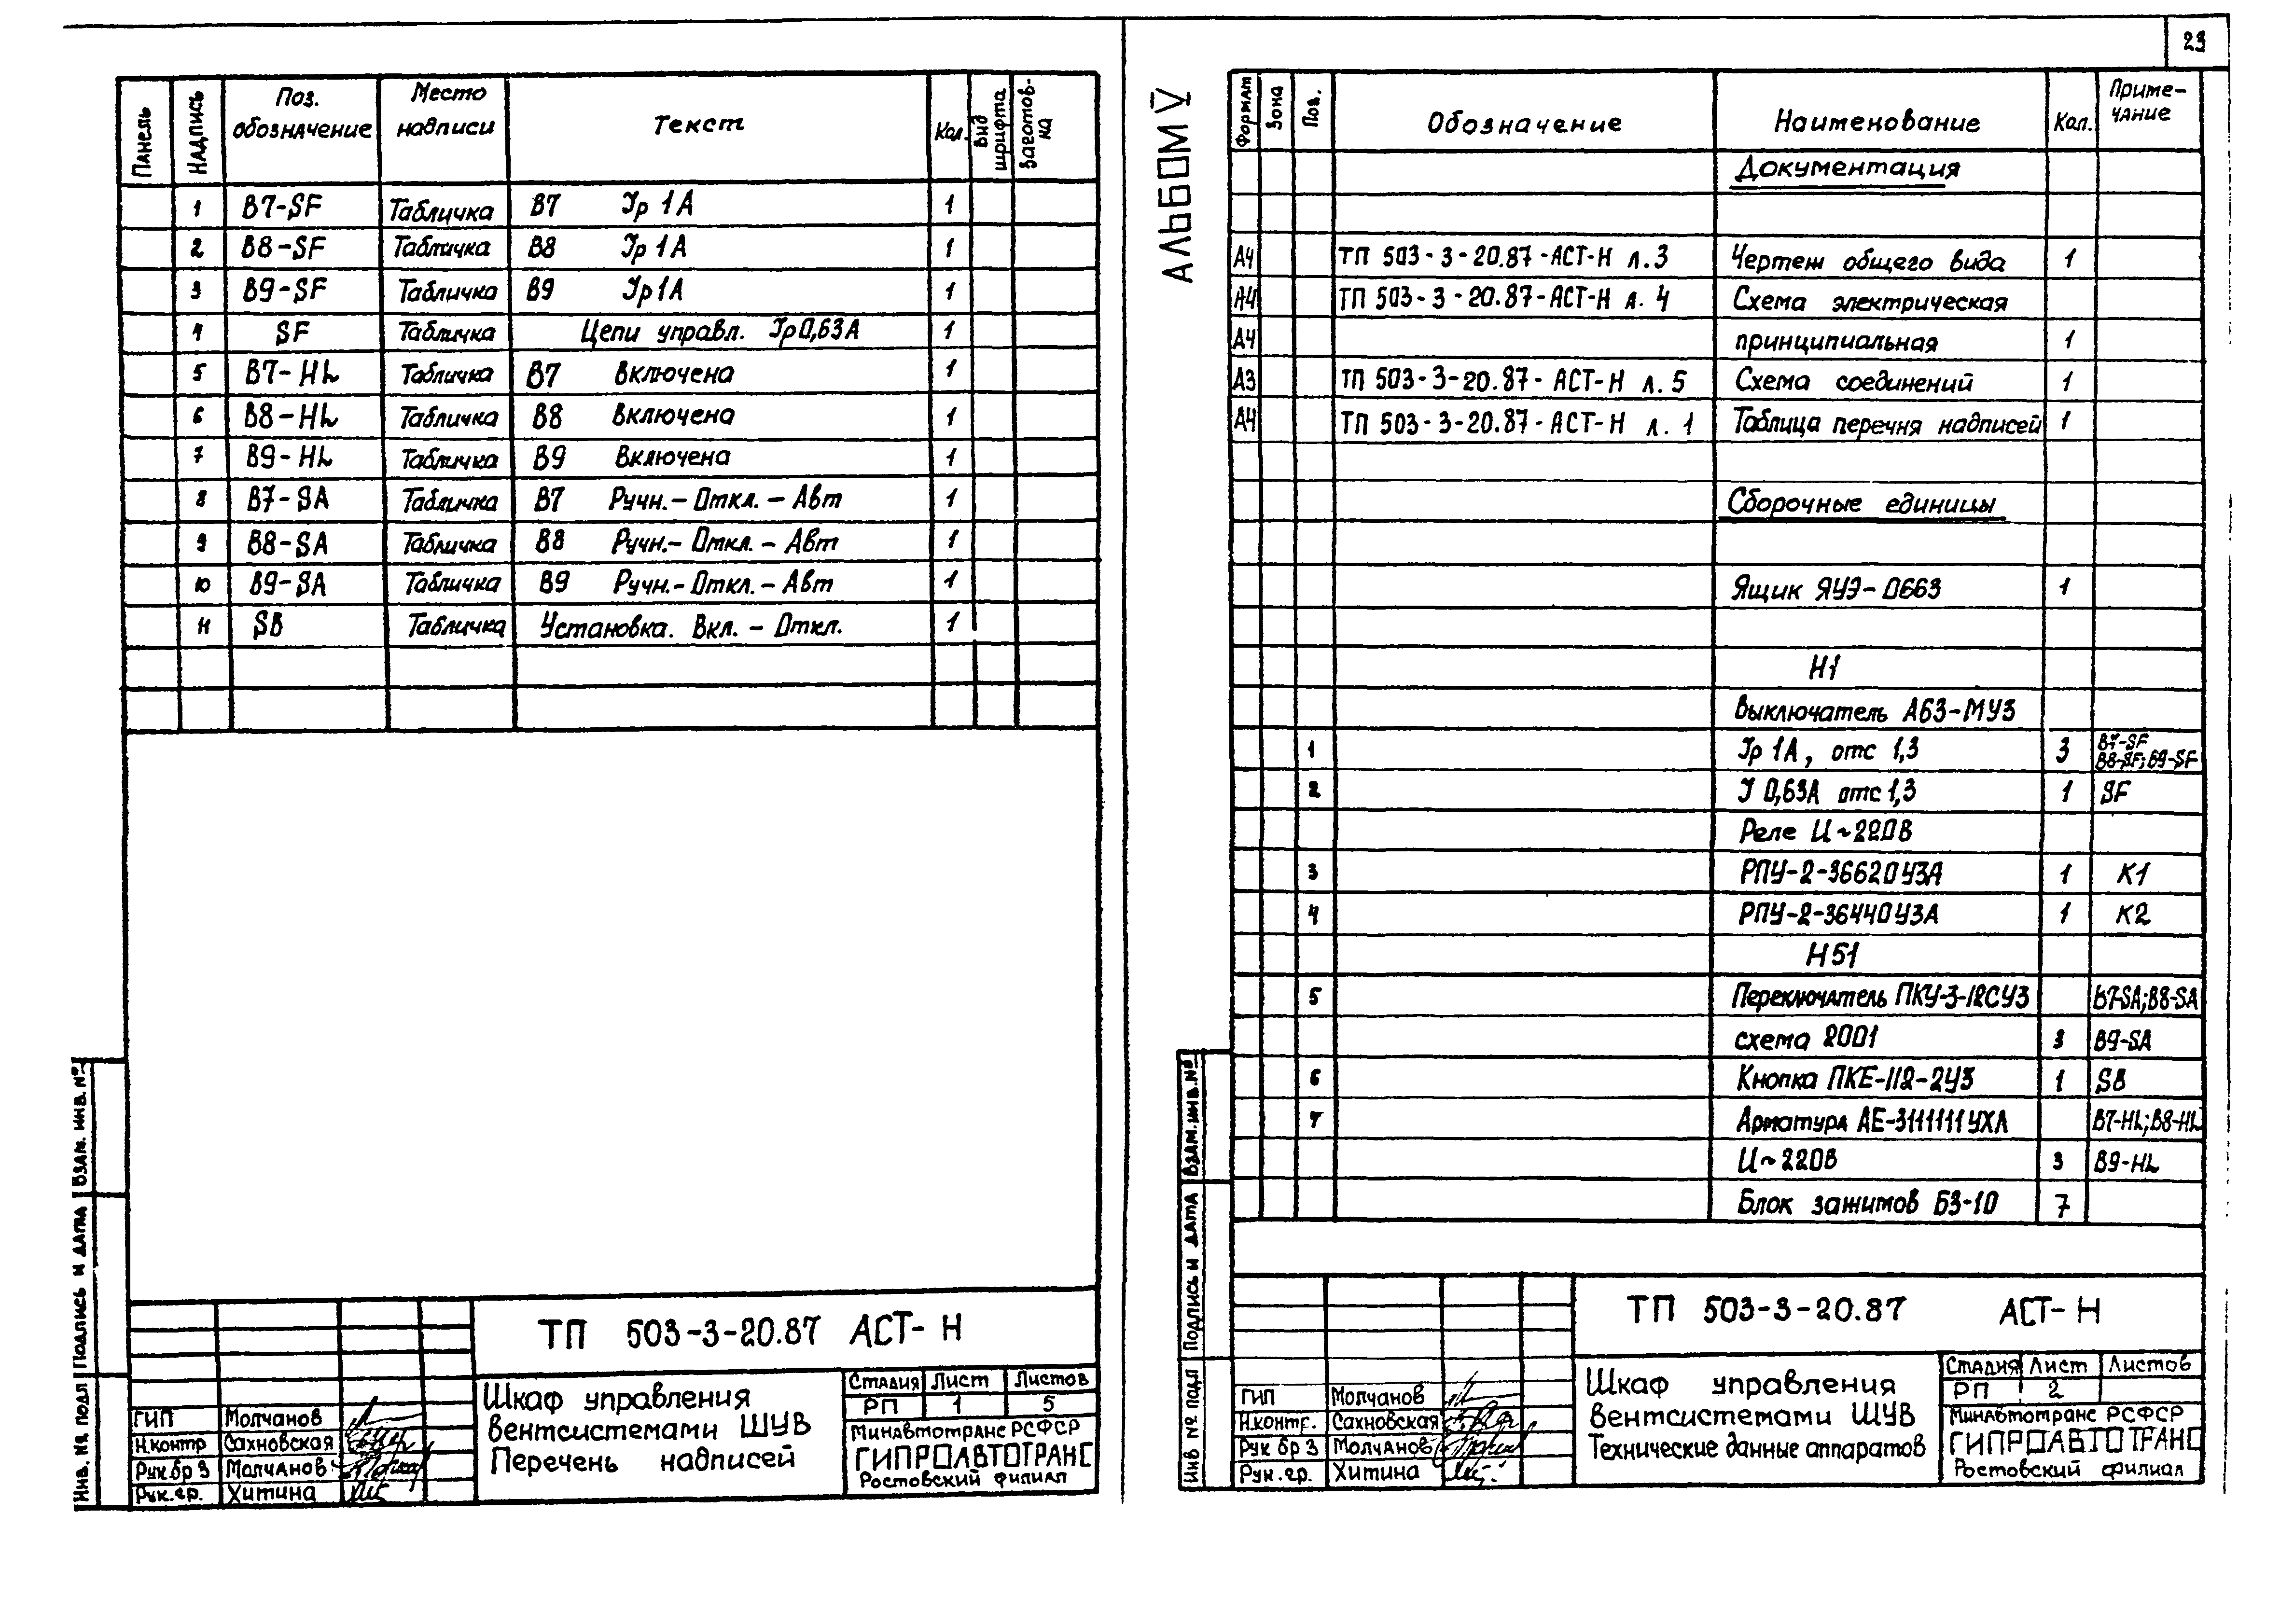 23
Панель Надпись Поз. обозначение Место надписи Текст Кол. Вид шрифта Заготовка
1 В7-SF Табличка В7 Iр 1А 1
2 В8-SF Табличка В8 Iр 1А 1
3 В9-SF Табличка В9 Iр 1А 1
4 SF Табличка Цепи управл. Iр 0,63А 1
5 В7-HL Табличка В7 Включена 1
6 В8-HL Табличка В8 Включена 1
7 В9-HL Табличка В9 Включена 1
8 В7-SA Табличка В7 Ручн.-Откл.-Авт 1
9 В8-SA Табличка В8 Ручн.-Откл.-Авт 1
10 В9-SA Табличка В9 Ручн.-Откл.-Авт 1
11 SB Табличка Установка. Вкл.-Откл. 1
Инв. № подл Подпись и дата Взам. инв. №
ТП 503-3-20.87 АСТ-Н
Шкаф управления
вентсистемами ШУВ
Перечень надписей
Стадия Лист Листов
РП 1 5
Минавтотранс РСФСР
ГИПРОАВТОТРАНС
Ростовский филиал
ГИП Молчанов
Н.контр Сахновская
Рук.бр 3 Молчанов
Рук.гр. Хитина
АЛЬБОМ V
Формат Зона Поз. Обозначение Наименование Кол. Примечание
Документация
А4 ТП 503-3-20.87-АСТ-Н л.3 Чертеж общего вида 1
А4 ТП 503-3-20.87-АСТ-Н л. 4 Схема электрическая
А4 принципиальная 1
А3 ТП 503-3-20.87-АСТ-Н л. 5 Схема соединений 1
А4 ТП 503-3-20.87-АСТ-Н л. 1 Таблица перечня надписей 1
Сборочные единицы
Ящик ЯУЭ-0663 1
Н1
Выключатель А63-МУ3
1 Iр 1А, отс 1,3 3 В7-SF В8-SF; В9-SF
2 I 0,63А отс 1,3 1 SF
Реле U~220В
3 РПУ-2-36620У3А 1 К1
4 РПУ-2-36440У3А 1 К2
Н51
5 Переключатель ПКУ-3-12СУ3 В7-SA; В8-SA
схема 2001 3 В9-SA
6 Кнопка ПКЕ-112-2У3 1 SB
7 Арматура АЕ-3111111УХЛ В7-HL; В8-HL
U~220В 3 В9-HL
Блок зажимов БЗ-10 7
Инв № подл Подпись и дата Взам.инв.№
ТП 503-3-20.87 АСТ-Н
Шкаф управления
вентсистемами ШУВ
Технические данные аппаратов
Стадия Лист Листов
РП 2
Минавтотранс РСФСР
ГИПРОАВТОТРАНС
Ростовский филиал
ГИП Молчанов
Н.контр. Сахновская
Рук бр 3 Молчанов
Рук.гр. Хитина